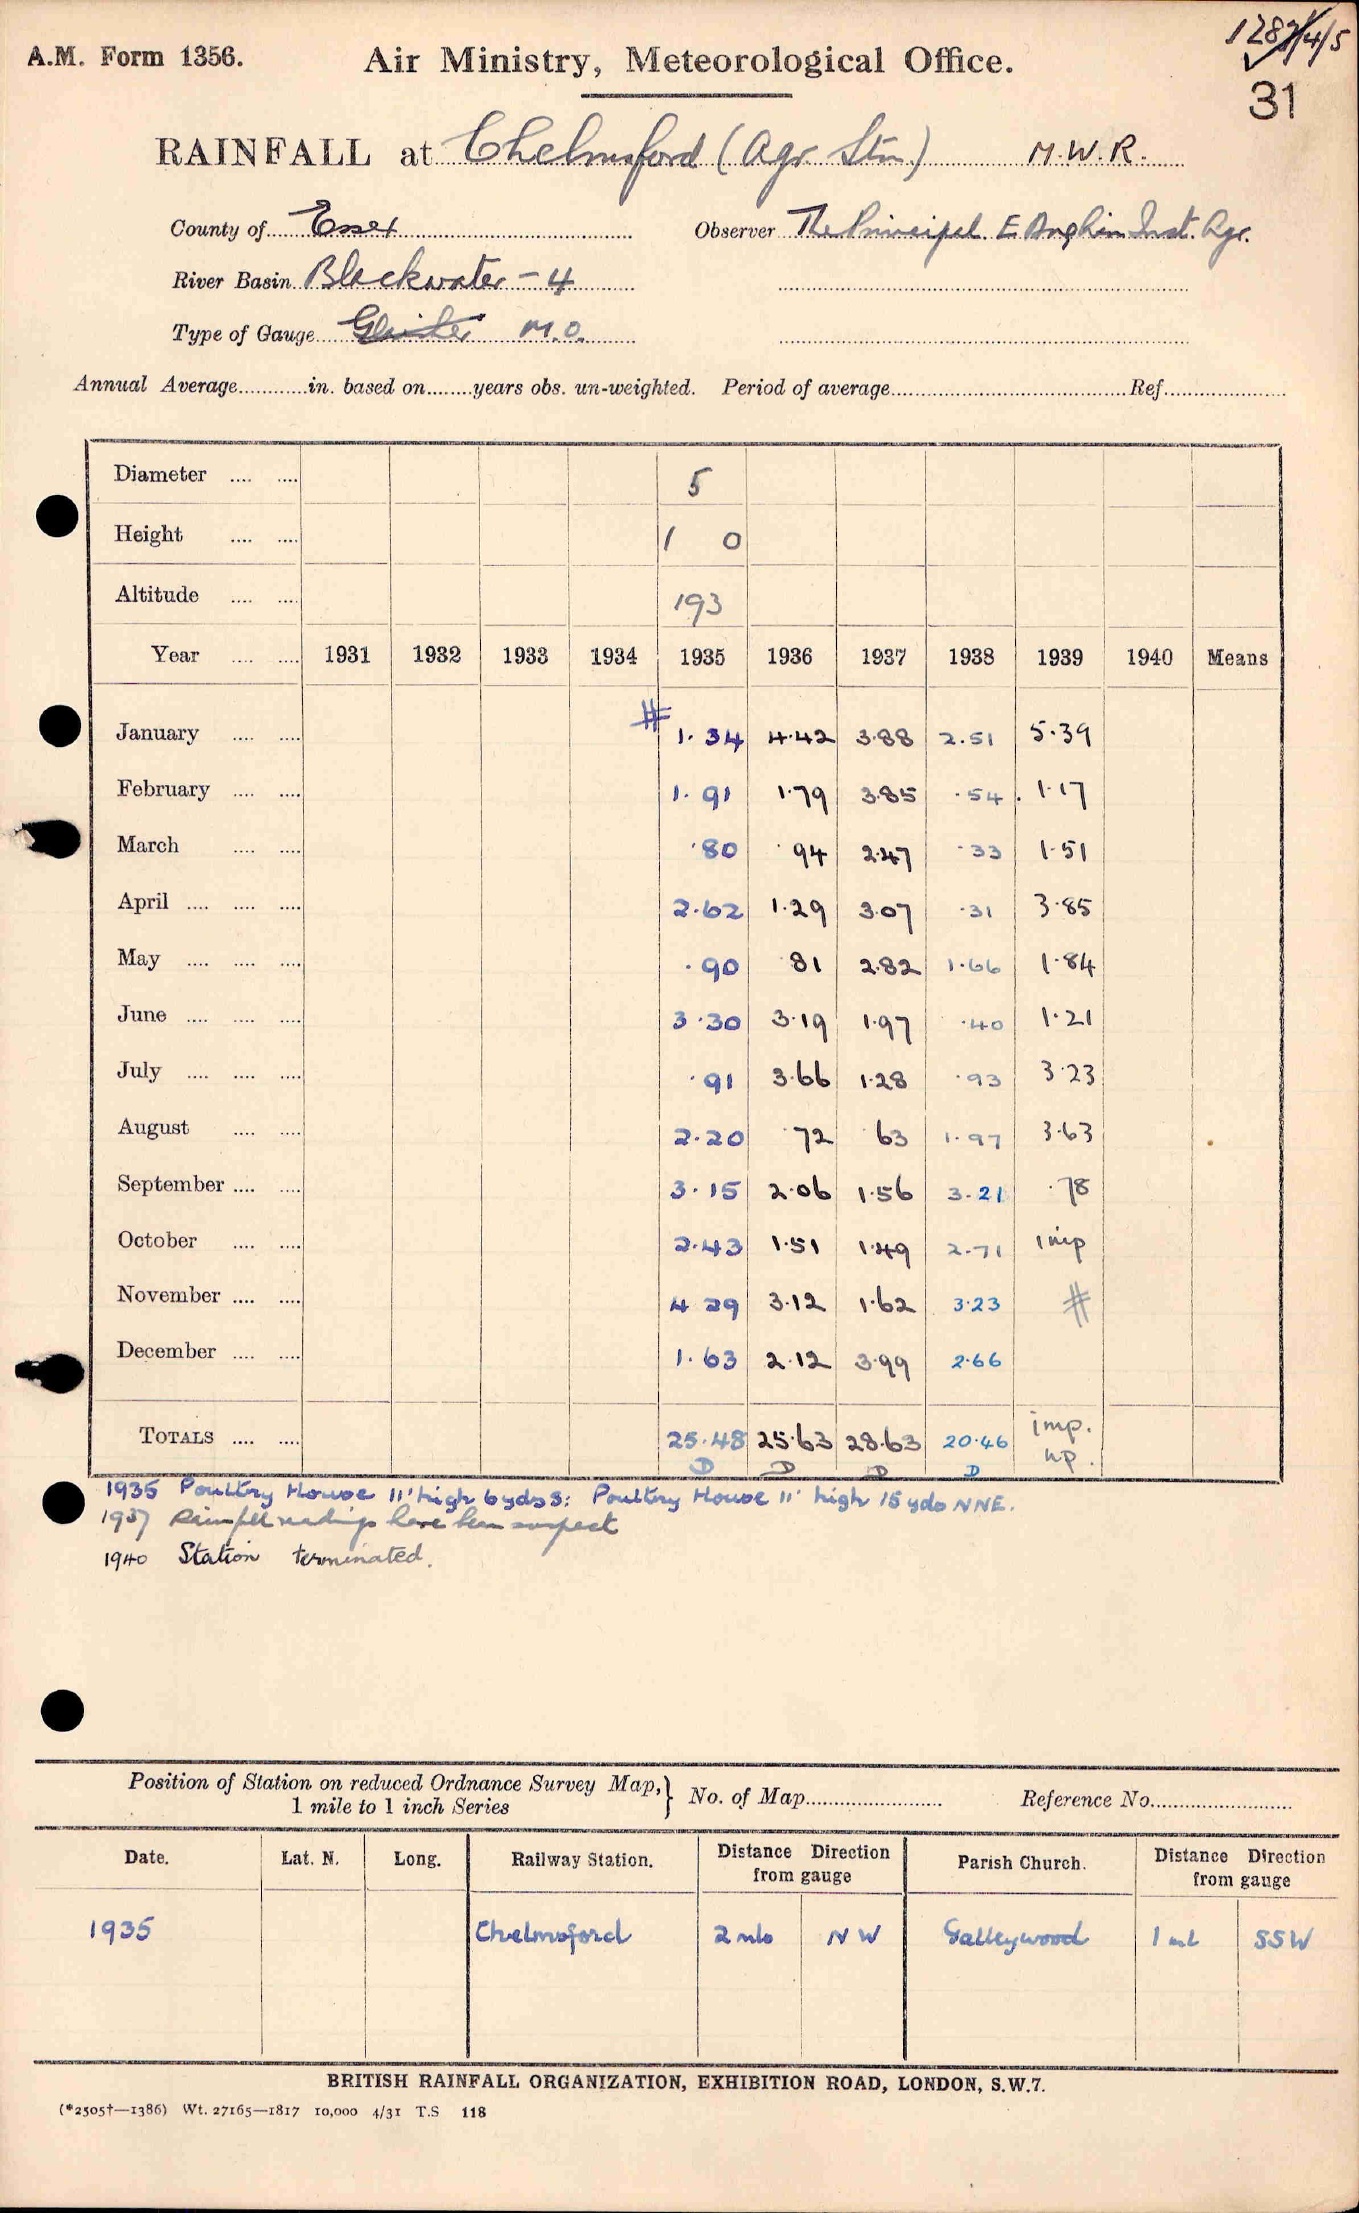 1287/4/5
A.M. Form 1356.
Air Ministry, Meteorological Office.
31
RAINFALL at Chelmsford (Agr. Stn.) M.W.R.
County of Essex Observer The Principal E Anglian Inst. Agr.
River Basin Blackwater - 4
Type of Gauge Glaisher M.O.
Annual Average in. based on years obs. un-weighted. Period of average Ref.
Diameter 5
Height 1 0
Altitude 193
Year 1931 1932 1933 1934 1935 1936 1937 1938 1939 1940 Means
January # 1.34 4.42 3.88 2.51 5.39
February 1.91 1.79 3.85 .54 1.17
March .80 .94 2.47 .33 1.51
April 2.62 1.29 3.07 .31 3.85
May .90 81 2.82 1.66 1.84
June 3.30 3.19 1.97 .40 1.21
July .91 3.66 1.28 .93 3.23
August 2.20 .72 63 1.97 3.63
September 3.15 2.06 1.56 3.21 .78
October 2.43 1.51 1.49 2.71 imp
November 4 29 3.12 1.62 3.23 #
December 1.63 2.12 3.99 2.66
TOTALS 25.48 25.63 28.63 20.46 imp.
D D D D np.
1935 Poultry House 11' high 6 yds S: Poultry House 11' high 15 yds NNE.
1937 Rainfall readings have been suspect
1940 Station terminated.
Position of Station on reduced Ordnance Survey Map, } No. of Map Reference No.
1 mile to 1 inch Series
Date. Lat. N. Long. Railway Station. Distance Direction from gauge Parish Church. Distance Direction from gauge
1935 Chelmsford 2 mls NW Galleywood 1 ml SSW
BRITISH RAINFALL ORGANIZATION, EXHIBITION ROAD, LONDON, S.W.7.
(*2505†—1386) Wt. 27165—1817 10,000 4/31 T.S 118